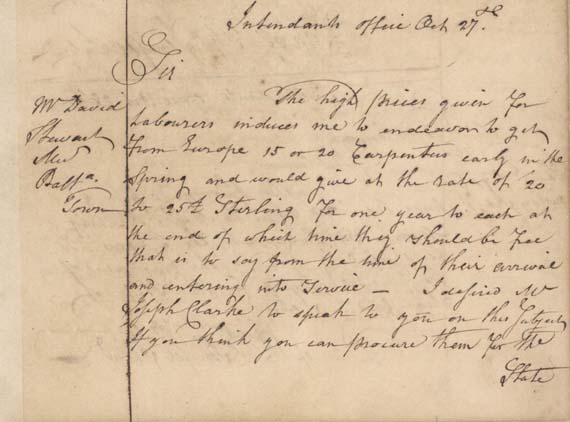 Intendants office Oct 27th
Sir
Mr David
Stewart
Mert
Balta.
Town
The high prices given for
Labourers induces me to endeavor to get
from Europe 15 or 20 Carpenters early in the
Spring and would give at the rate of 20
to 25£ Sterling for one year to each at
the end of which time they should be free
that is to say from the time of their arrival
and entering into Service — I desired Mr
Joseph Clarke to speak to you on this Subject
If you think you can procure them for the
State